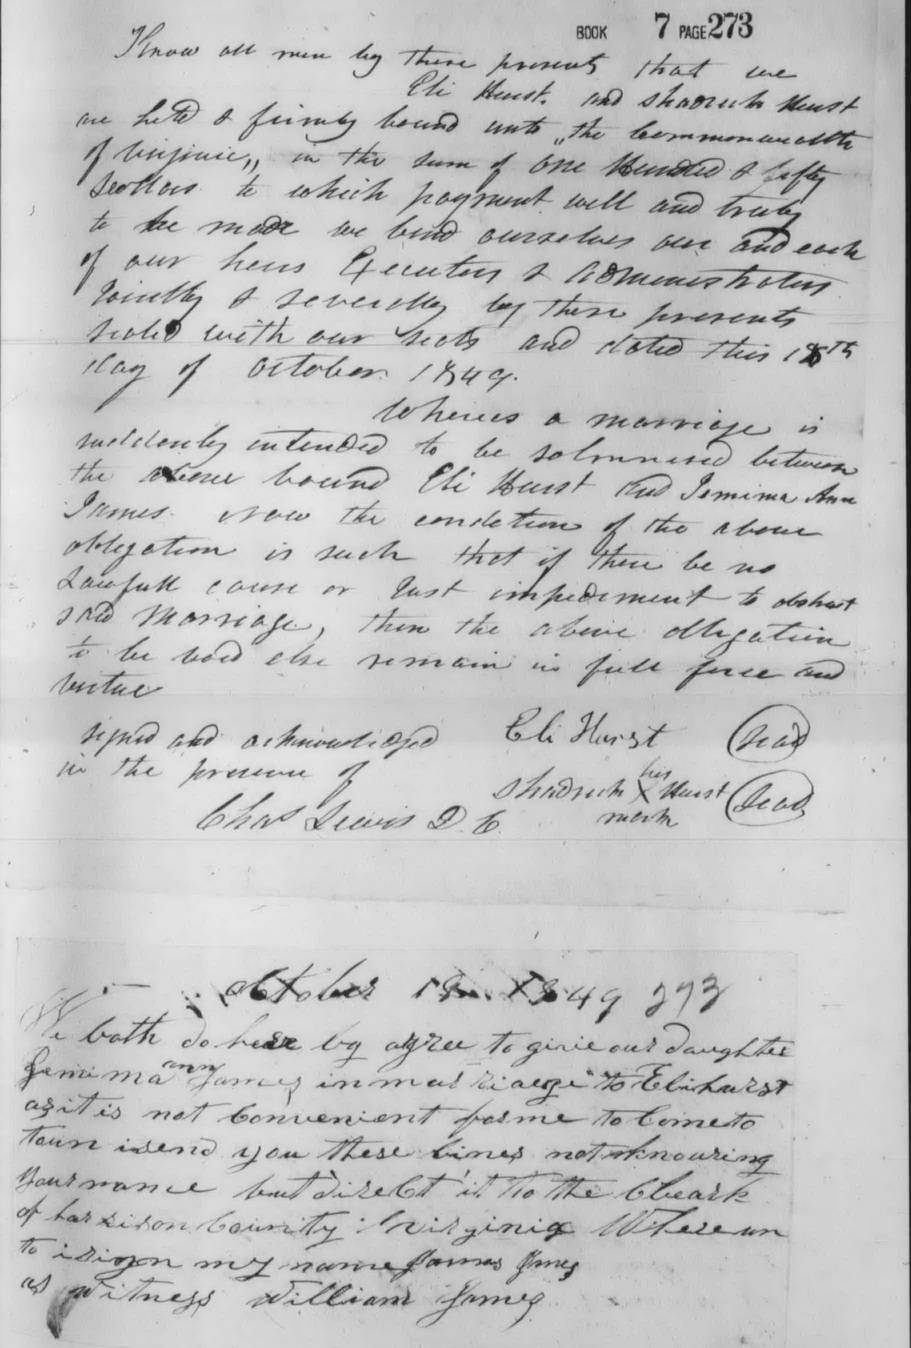 BOOK 7 PAGE 273
Know all men by these presents that we
Eli Hurst. and Shadrich Hurst
are held & firmly bound unto "the Commonwealth
of Virginia," in the sum of One Hundred & fifty
Dollars to which payment well and truly
to be made we bind ourselves our and each
of our heirs Executors & Administrators
Jointly & severally by these presents
sealed with our seals and dated this 18th
day of October. 1849.
Whereas a marriage is
suddenly intended to be solmnised between
the above bound Eli Hurst and Jemima Ann
James. Now the condition of the above
obligation is such that if there be no
Lawfull cause or Just impediment to obstruct
said Marriage, then the above obligation
to be void else remain in full force and
virtue
signed and acknowledged Eli Hurst (Seal)
in the presence of Shadrich his X mark Hurst (Seal)
Chas Lewis D. C.
October 18 1849 273
We both do here by agree to give our daughter
Jemima ann James in marriaege to Eli hurst
as it is not Convenient for me to Come to
toun i send you these lines not knowing
your name but direct it to the Cleark
of harrison County Virginia Where un
to i sign my name James James
as witness William James